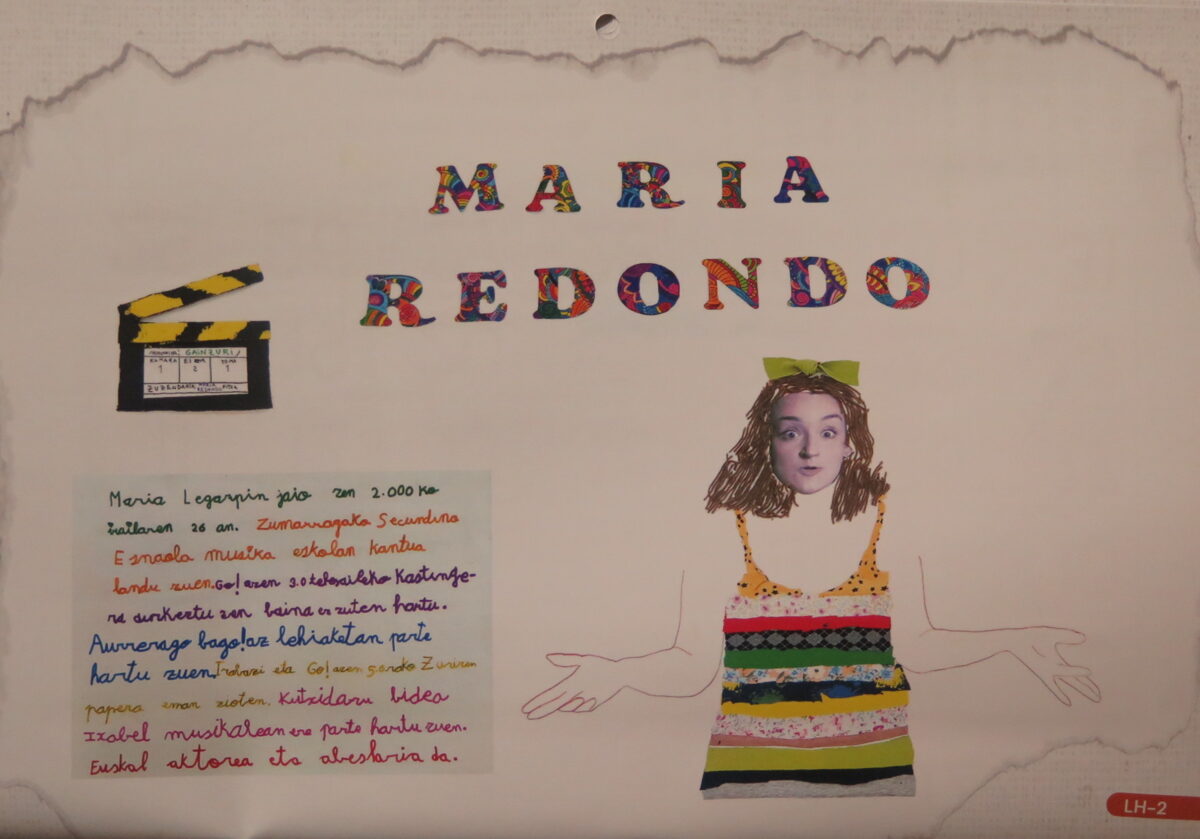 MARIA
REDONDO
GAINZURI
KAMARA
1
2
1
ZUZENDARIA MARIA REDONDO
Maria Legarpin jaio zen 2.000 ko
irailaren 26 an. Zumarragako Secundino
Esnaola musika eskolan kantua
landu zuen. Go!azen 3.0 telesaileko Kastinge-
ra aurkeztu zen baina ez zuten hartu.
Aurrerago bago!az lehiaketan parte
hartu zuen. Irabazi eta Go!azen 5.0rako Zuriren
papera eman zioten. Kutxidazu bidea
Ixabel musikalean ere parte hartu zuen.
Euskal aktorea eta abeslaria da.
LH-2